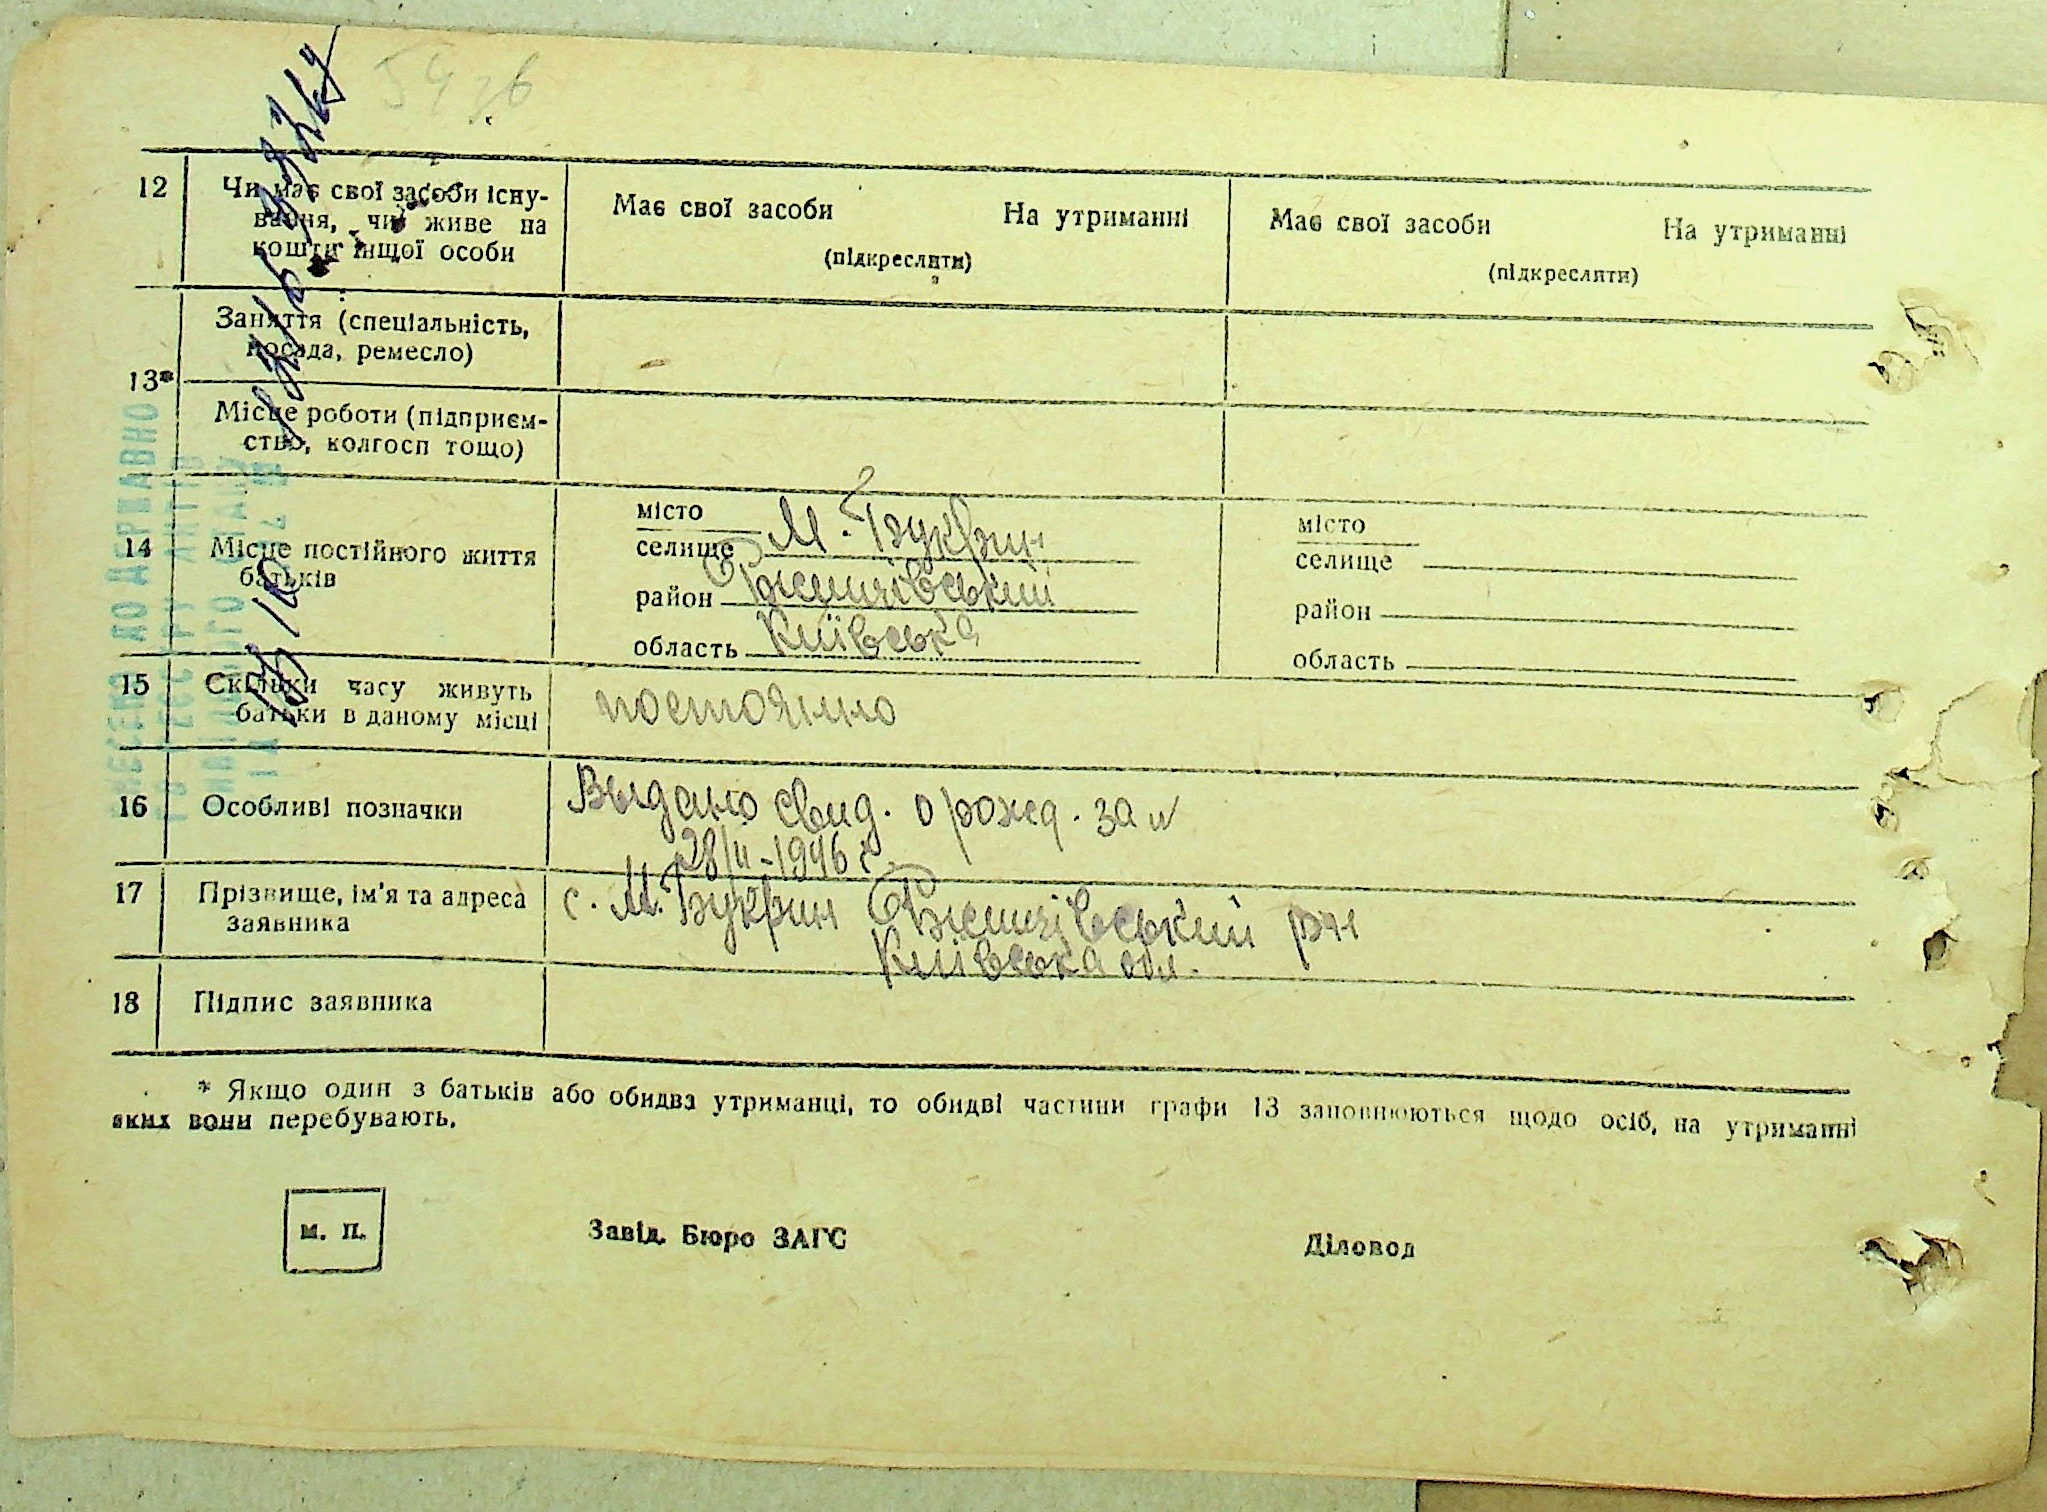 54 зв
12 Чи має свої засоби існу-
вання, чи живе на
кошти іншої особи
Має свої засоби На утриманні
(підкреслити)
Має свої засоби На утриманні
(підкреслити)
13*
Заняття (спеціальність,
посада, ремесло)
Місце роботи (підприєм-
ство, колгосп тощо)
14 Місце постійного життя
батьків
місто
селище М. Букрин
район Ржищівський
область Київська
місто
селище
район
область
15 Скільки часу живуть
батьки в даному місці
постоянно
16 Особливі позначки
Выдано свид. о рожд. за №
28/II-1946 г.
17 Прізвище, ім'я та адреса
заявника
с. М. Букрин Ржищівський р-н
Київська обл.
18 Підпис заявника
* Якщо один з батьків або обидва утриманці, то обидві частини графи 13 заповнюються щодо осіб, на утриманні
яких вони перебувають.
м. п.
Завід. Бюро ЗАГС
Діловод
ВНЕСЕНО ДО ДЕРЖАВНО